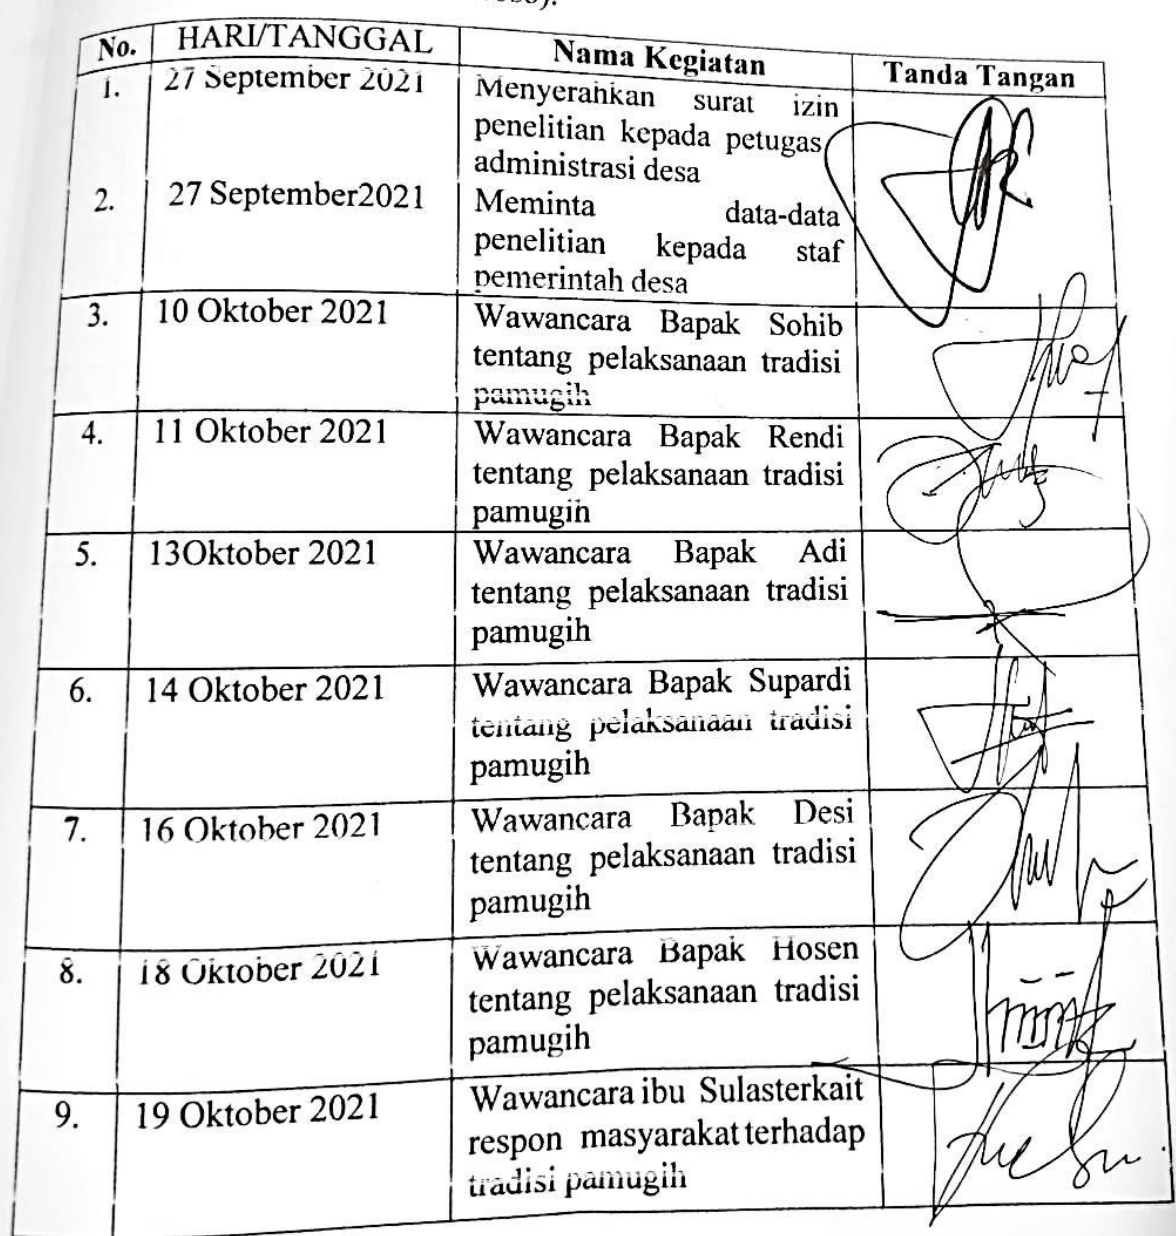 No. HARI/TANGGAL Nama Kegiatan Tanda Tangan
1. 27 September 2021 Menyerahkan surat izin
penelitian kepada petugas
administrasi desa
2. 27 September2021 Meminta data-data
penelitian kepada staf
pemerintah desa
3. 10 Oktober 2021 Wawancara Bapak Sohib
tentang pelaksanaan tradisi
pamugih
4. 11 Oktober 2021 Wawancara Bapak Rendi
tentang pelaksanaan tradisi
pamugih
5. 13Oktober 2021 Wawancara Bapak Adi
tentang pelaksanaan tradisi
pamugih
6. 14 Oktober 2021 Wawancara Bapak Supardi
tentang pelaksanaan tradisi
pamugih
7. 16 Oktober 2021 Wawancara Bapak Desi
tentang pelaksanaan tradisi
pamugih
8. 18 Oktober 2021 Wawancara Bapak Hosen
tentang pelaksanaan tradisi
pamugih
9. 19 Oktober 2021 Wawancara ibu Sulasterkait
respon masyarakat terhadap
tradisi pamugih